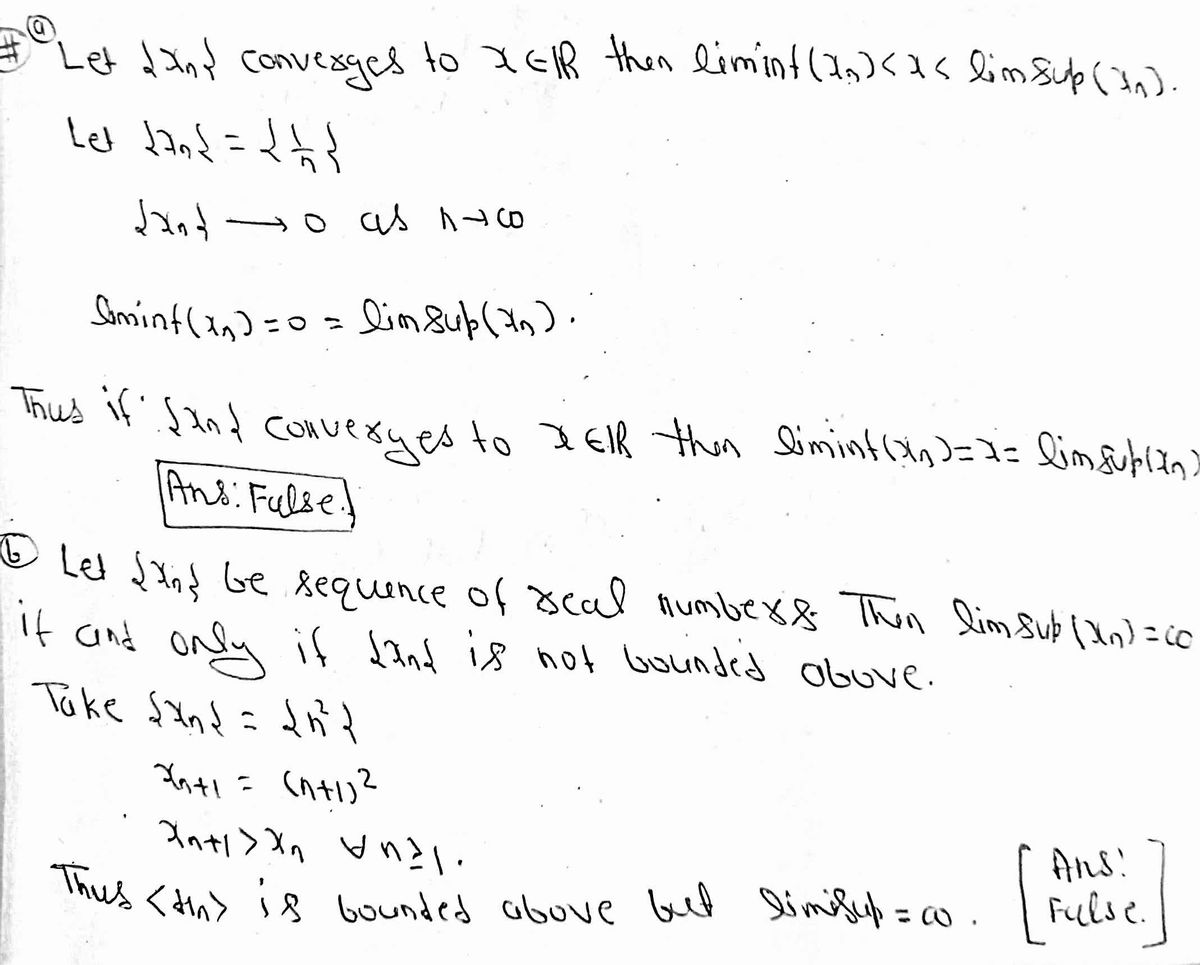 # ⓐ Let {xn} converges to x∈ℝ then liminf(xn)<x< limsup(xn).
Let {xn} = {1/n}
{xn} → 0 as n→∞
liminf(xn)=0 = limsup(xn).
Thus if {xn} converges to x∈ℝ then liminf(xn)=x= limsup(xn)
Ans: False.
ⓑ Let {xn} be sequence of real numbers. Then limsup(xn)=∞
if and only if {xn} is not bounded above.
Take {xn} = {n²}
xn+1 = (n+1)²
xn+1 > xn ∀ n≥1.
Thus <xn> is bounded above but limsup = ∞. [Ans: False.]